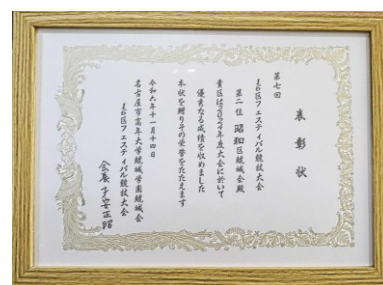 表彰状
第七回
16区フェスティバル競技大会
第二位 昭和区鯱城会殿
貴区は2024年度大会に於いて
優秀なる成績を収めました
本状を贈りその栄誉をたたえます
令和六年十一月十四日
名古屋市高年大学鯱城学園鯱城会
16区フェスティバル競技大会
会長 子安正昭